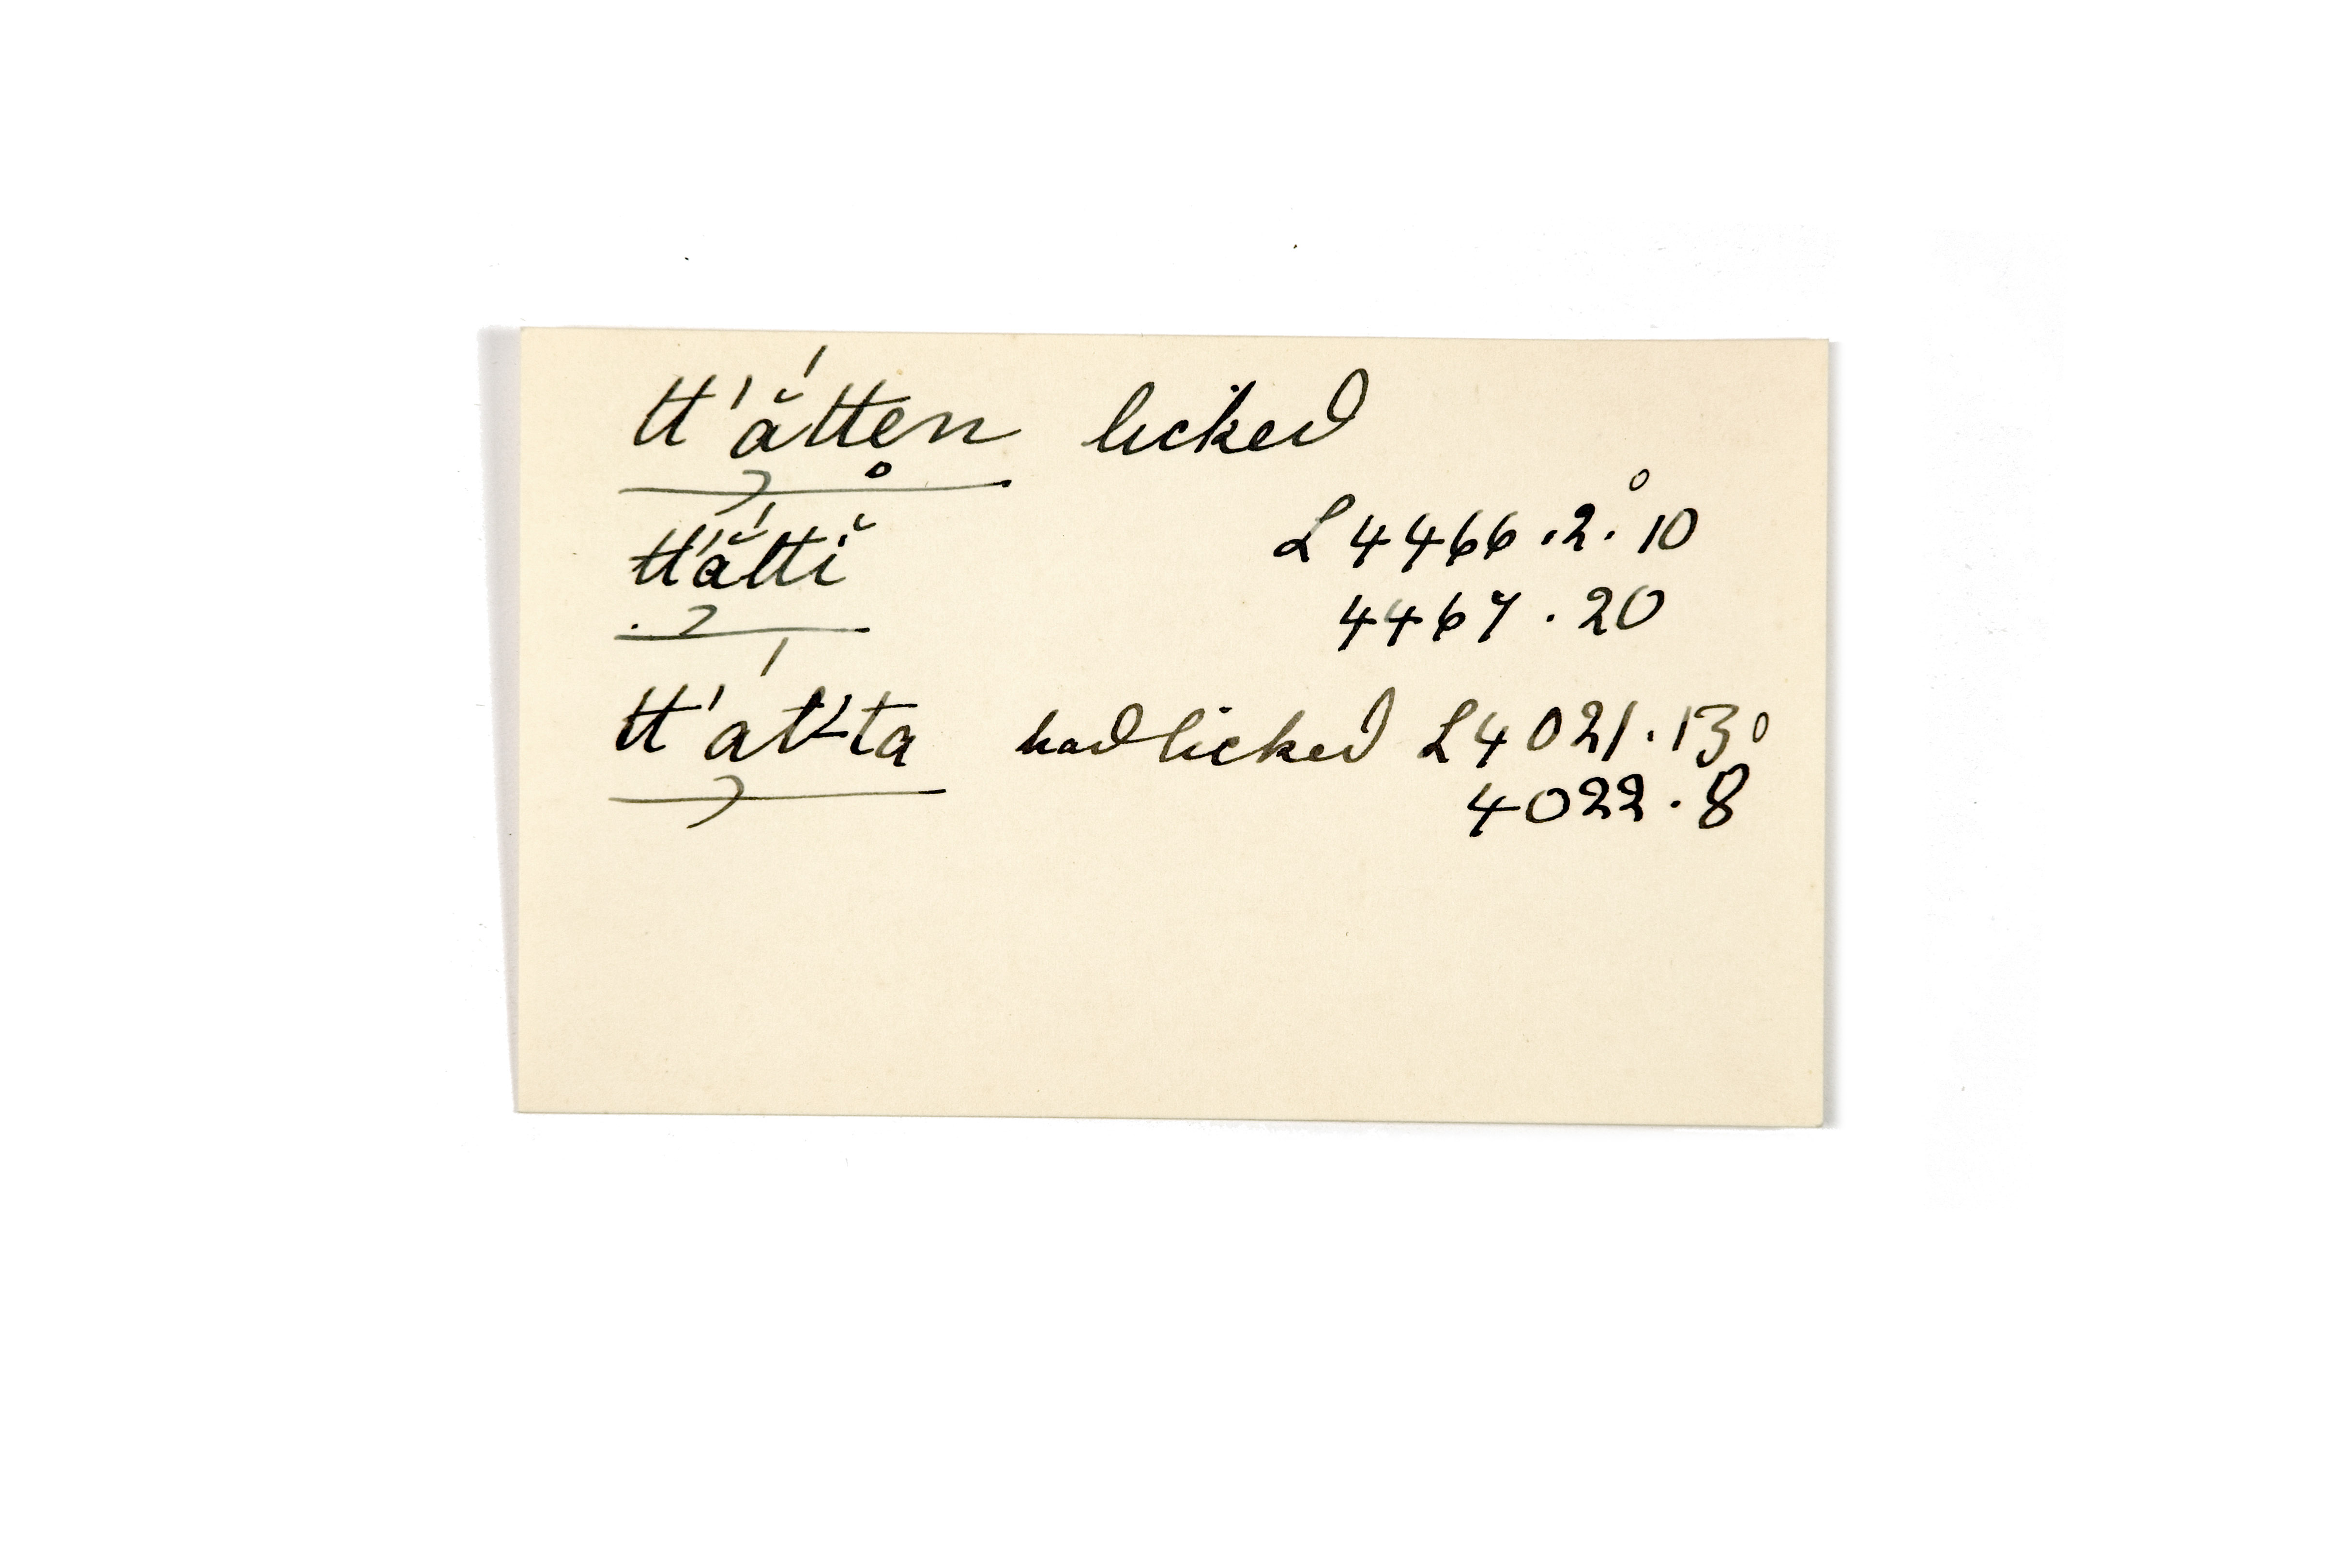 tt'ắtten licked
tt'ắttĭ L 4466 . 2° . 10
4467 . 20
tt'át-ta had licked L 4021 . 13°
4022 . 8